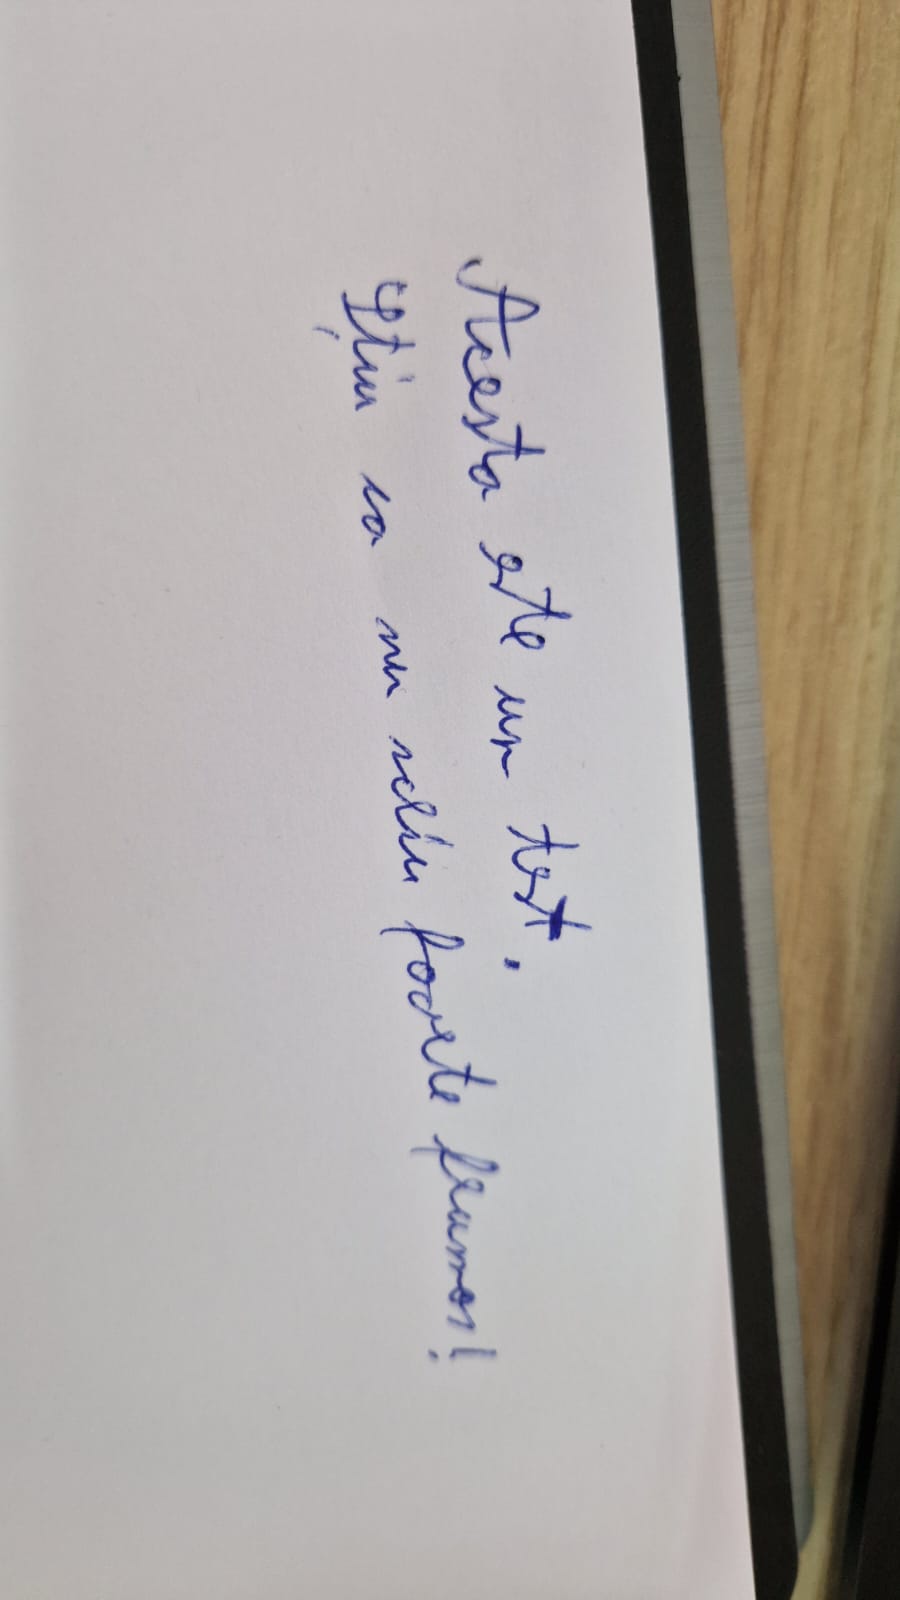 Acesta este un test.
Știu ca nu scriu foarte frumos!